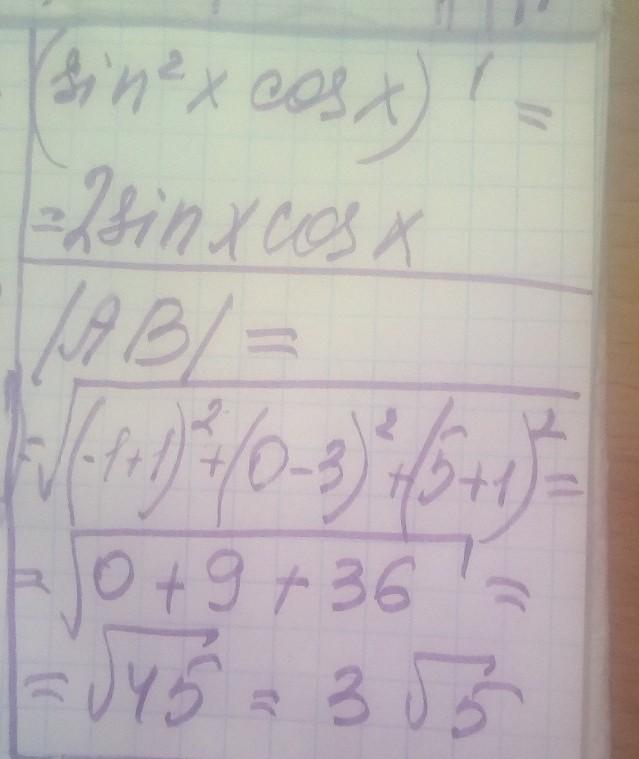 (sin² x cos x)' =
= 2 sin x cos x
|AB| =
= √((-1+1)² + (0-3)² + (5+1)²) =
= √(0 + 9 + 36) =
= √45 = 3 √5